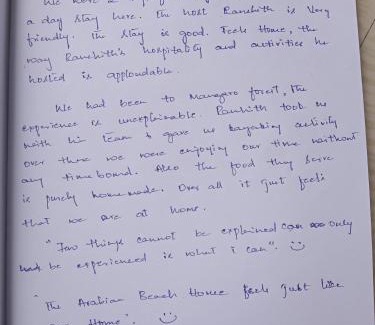 a day stay here. The host Ranchith is very
friendly. The stay is good. Feels Home, the
way Ranchith's hospitality and activities he
hosted is applaudable.
We had been to Mangaro forest, the
experience is unexplainable. Ranhith took us
with his team & gave us kayaking activity
over there we were enjoying our time without
any time bound. Also the food they serve
is purely homemade. Over all it just feels
that we are at home.
"Few things cannot be explained can only
be experienced is what i can". 😊
"The Arabian Beach House feels just like
Home". 😊